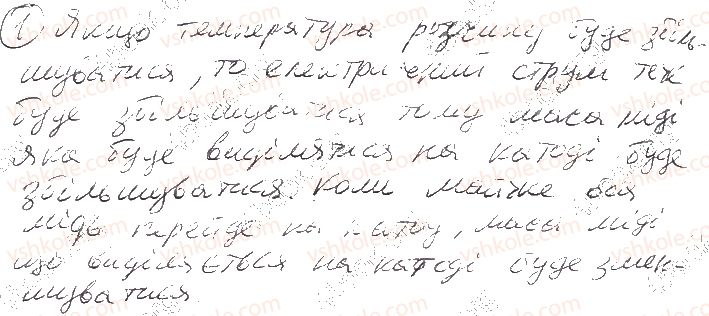 ① Якщо температура розчину буде збіль-
шуватися, то електричний струм теж
буде збільшуватися тому маса міді
яка буде виділятися на катоді буде
збільшуватися. Коли майже вся
мідь перейде на катод, маса міді
що виділяється на катоді буде змен-
шуватися